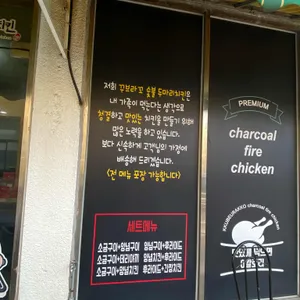 저희 꾸브라꼬 숯불 두마리치킨은
내 가족이 먹는다는 생각으로
청결하고 맛있는 치킨을 만들기 위해
많은 노력을 하고 있습니다.
보다 신속하게 고객님의 가정에
배송해 드리겠습니다.
<전 메뉴 포장 가능합니다>
세트메뉴
소금구이+양념구이 양념구이+후라이드
소금구이+데리야끼 양념치킨+후라이드
소금구이+양념치킨 후라이드+간장치킨
PREMIUM
charcoal
fire
chicken